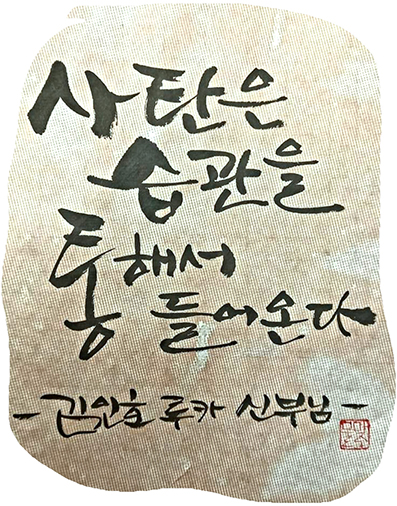 사탄은
습관을
통해서
들어온다
- 김인호 루카 신부님 -